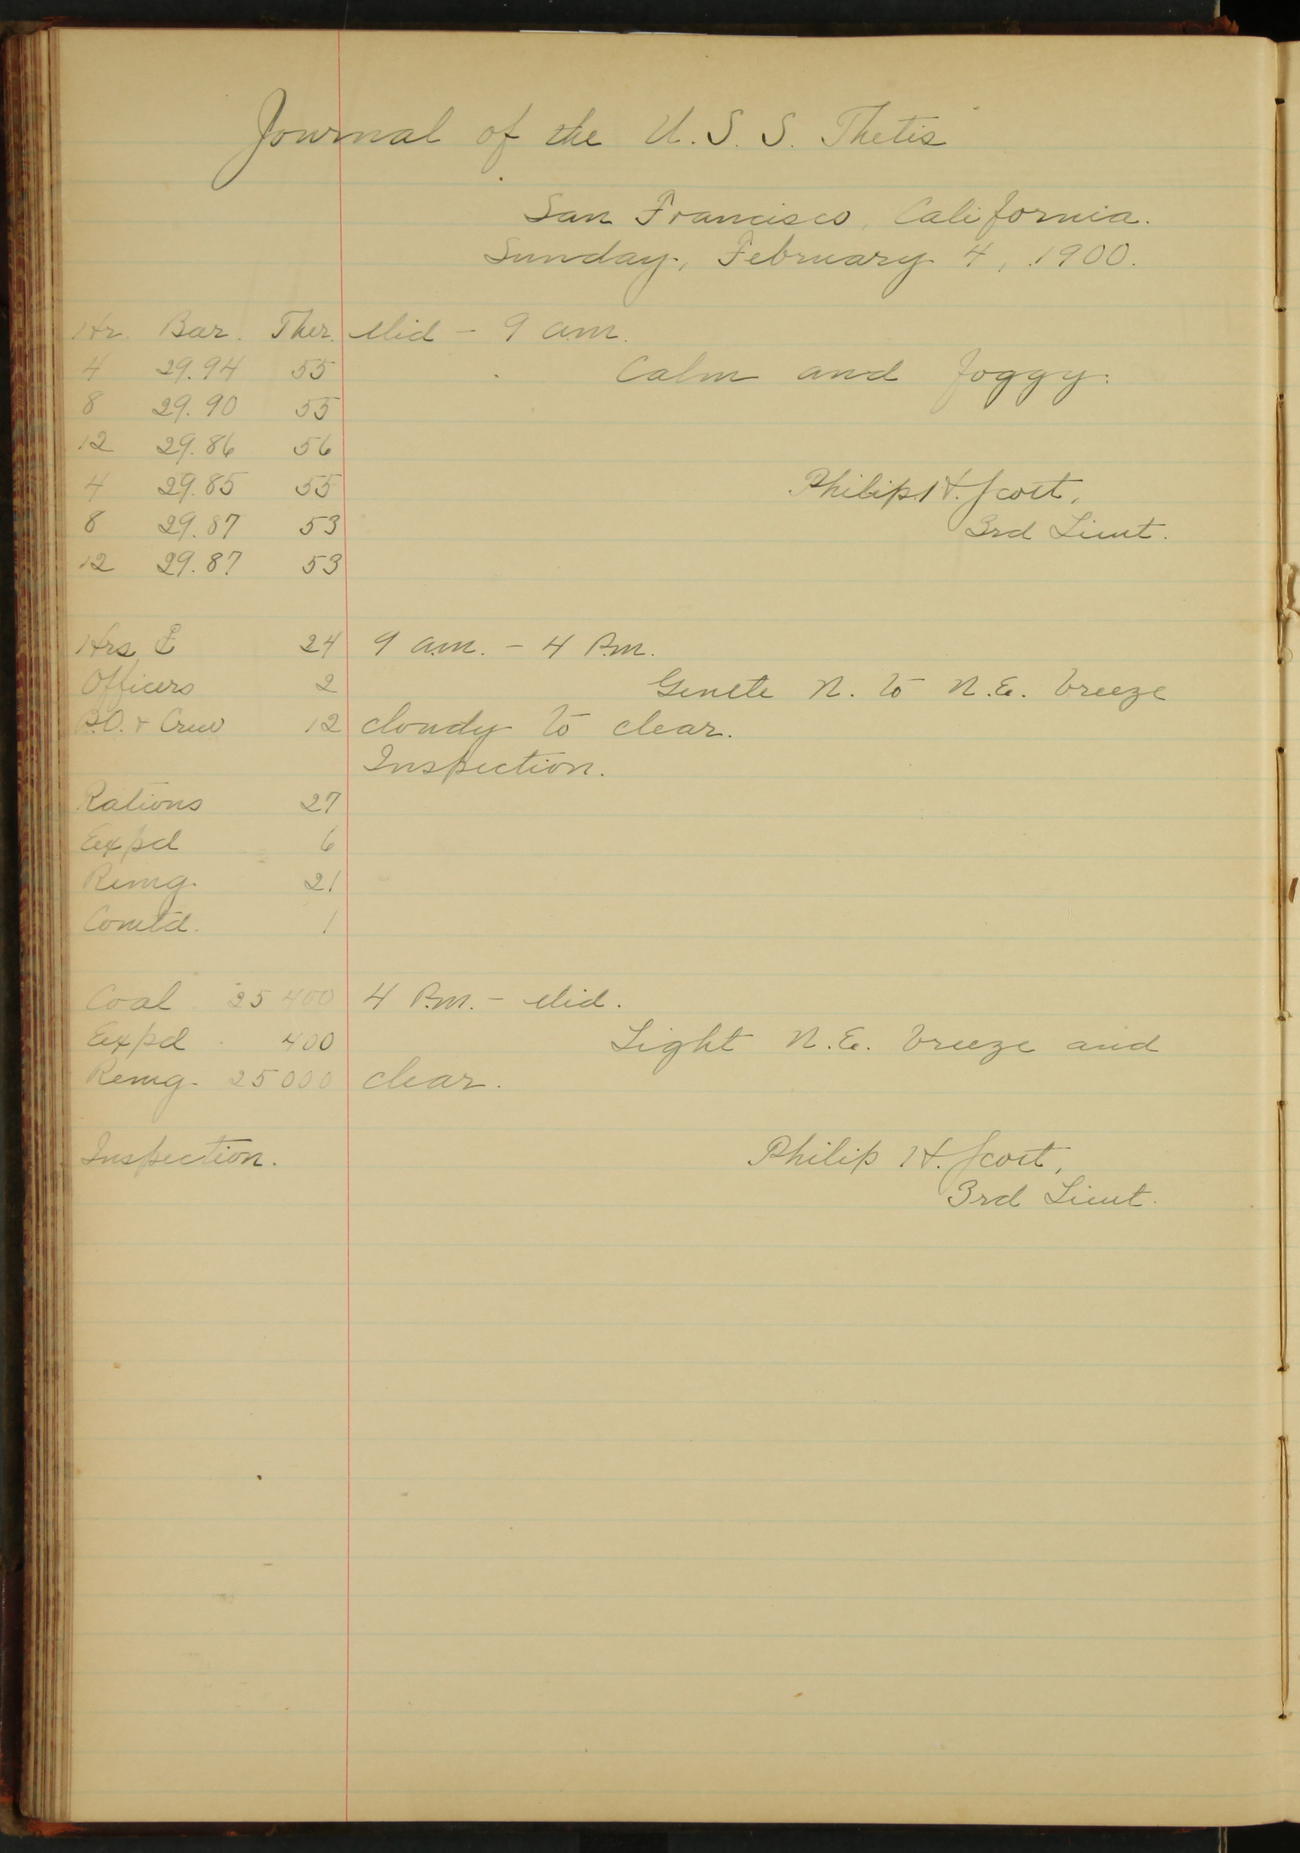 Journal of the U.S.S. Thetis
San Francisco, California.
Sunday, February 4, 1900.
Hr. Bar. Ther. Mid – 9 a.m.
4 29.94 55 Calm and foggy.
8 29.90 55
12 29.86 56
4 29.85 55 Philip H. Scott,
8 29.87 53 3rd Lieut.
12 29.87 53
Hrs 24 9 a.m. – 4 P.m.
Officers 2 Gentle N. to N.E. breeze
P.O. & Crew 12 cloudy to clear.
Inspection.
Rations 27
Expd 6
Remg. 21
Comtd. 1
Coal 25400 4 P.m. – Mid.
Expd 400 Light N.E. breeze and
Remg. 25000 clear.
Inspection. Philip H. Scott,
3rd Lieut.